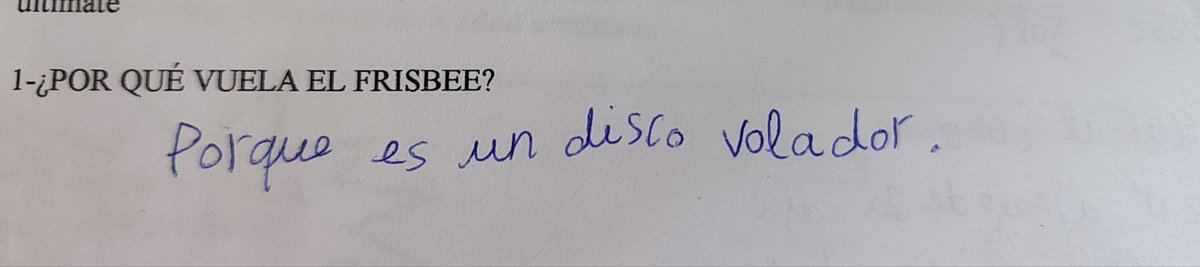 ultimate
1-¿POR QUÉ VUELA EL FRISBEE?
Porque es un disco volador.